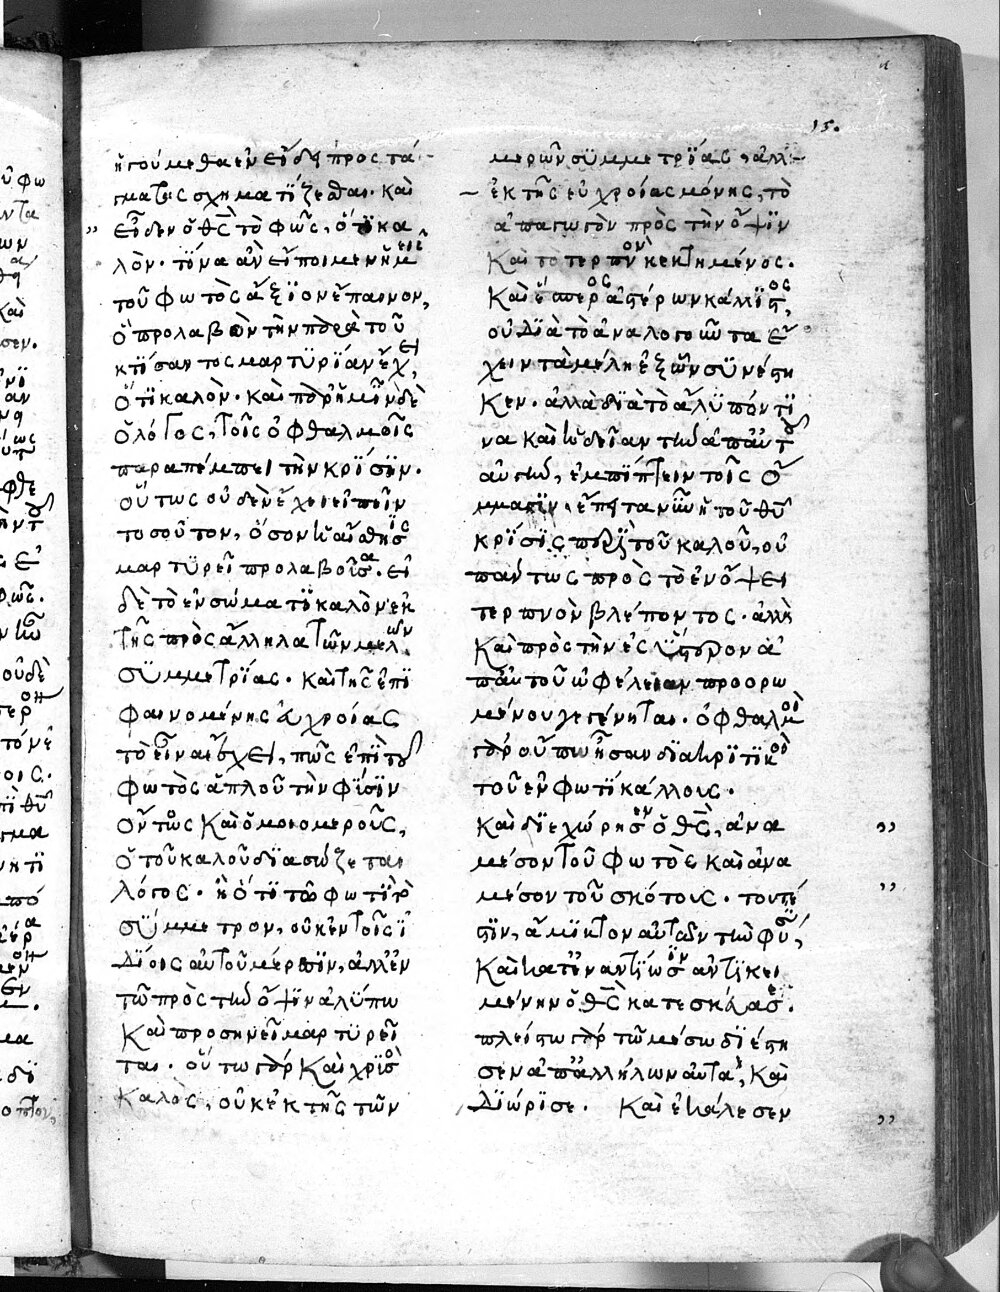 15.
ἡγούμεθα ἐν εἴδει προστά-
γματος σχηματΐζεσθαι. Καὶ
εἶδεν ὁ θς̅ τὸ φῶς, ὅτι κα
λόν. τΐνα ἂν εἴποιμεν ἡμεῖς
τοῦ φωτὸς ἄξϊον ἔπαινον,
ὃ προλαβὸν τὴν παρὰ τοῦ
κτΐσαντος μαρτϋρΐαν ἔχει,
ὅτι καλόν. καὶ παρ' ἡμῖν δὲ
ὁ λόγος, τοῖς ὀφθαλμοῖς
παραπέμπει τὴν κρΐσϊν.
οὕτως οὐδὲν ἔχει εἰπεῖν
τοσοῦτον, ὅσον ἡ αἴσθησις
μαρτϋρεῖ προλαβοῦσα. εἰ
δὲ τὸ ἐν σώματι καλὸν ἐκ
τῆς πρὸς ἄλληλα τῶν μελῶν
σϋμμετρΐας. καὶ τῆς ἐπϊ
φαινομένης εὐχροίας
τὸ εἶναι ἔχει, πῶς ἐπὶ τοῦ
φωτὸς ἁπλοῦ τὴν φΰσϊν
ὄντος καὶ ὁμοιομεροῦς,
ὁ τοῦ καλοῦ διασώζεται
λόγος. ἢ ὅτι τῶ φωτὶ τὸ
σΰμμετρον, οὐκ ἐν τοῖς ἰ
δΐοις αὐτοῦ μέρεσϊν, ἀλλ' ἐν
τῶ πρὸς τὴν ὄψϊν ἀλΰπω
καὶ προσηνεῖ μαρτϋρεῖ
ται. οὕτω γὰρ καὶ χρϋσὸς
καλὸς, οὐκ ἐκ τῆς τῶν
μερῶν σϋμμετρΐας, ἀλλ'
ἐκ τῆς εὐχροίας μόνης, τὸ
ἐπαγωγὸν πρὸς τὴν ὄψϊν
καὶ τὸ τερπνὸν κεκτημένος.
καὶ ἕσπερος ἀστέρων κάλλϊστος,
οὐ δϊὰ τὸ ἀνάλογον τὰ ἔ
χειν τὰ μέλη ἐξ ὧν σϋνέστη
κεν. ἀλλὰ δϊὰ τὸ ἄλϋπόν τϊ
να καὶ ἡδεῖαν τὴν ἀπ' αὐτοῦ
αὐγὴν, ἐμπΐπτειν τοῖς ὄ
μμασϊν. ἔπειτα νῦν ἡ τοῦ θυ̅
κρΐσϊς περὶ τοῦ καλοῦ, οὐ
πάντως πρὸς τὸ ἐν ὄψει
τερπνὸν βλέποντος. ἀλλὰ
καὶ πρὸς τὴν ἐς ὕστερον ἀ
π' αὐτοῦ ὠφέλειαν προορω
μένου γεγένηται. ὀφθαλμοὶ
γὰρ οὔπω ἦσαν διακριτικοὶ
τοῦ ἐν φωτὶ κάλλους.
Καὶ διεχώρησεν ὁ θς̅, ἀνὰ
μέσον τοῦ φωτὸς καὶ ἀνὰ
μέσον τοῦ σκότους. τουτέ
στϊν, ἄμϊκτον αὐτῶν τὴν φύσιν,
καὶ κατ' ἐναντΐωσϊν ἀντϊκει
μένην ὁ θς̅ κατεσκεύασε.
πλείστω γὰρ τῶ μέσω διέστη
σεν ἀπ' ἀλλήλων αὐτὰ, καὶ
δϊώρϊσε. Καὶ ἐκάλεσεν